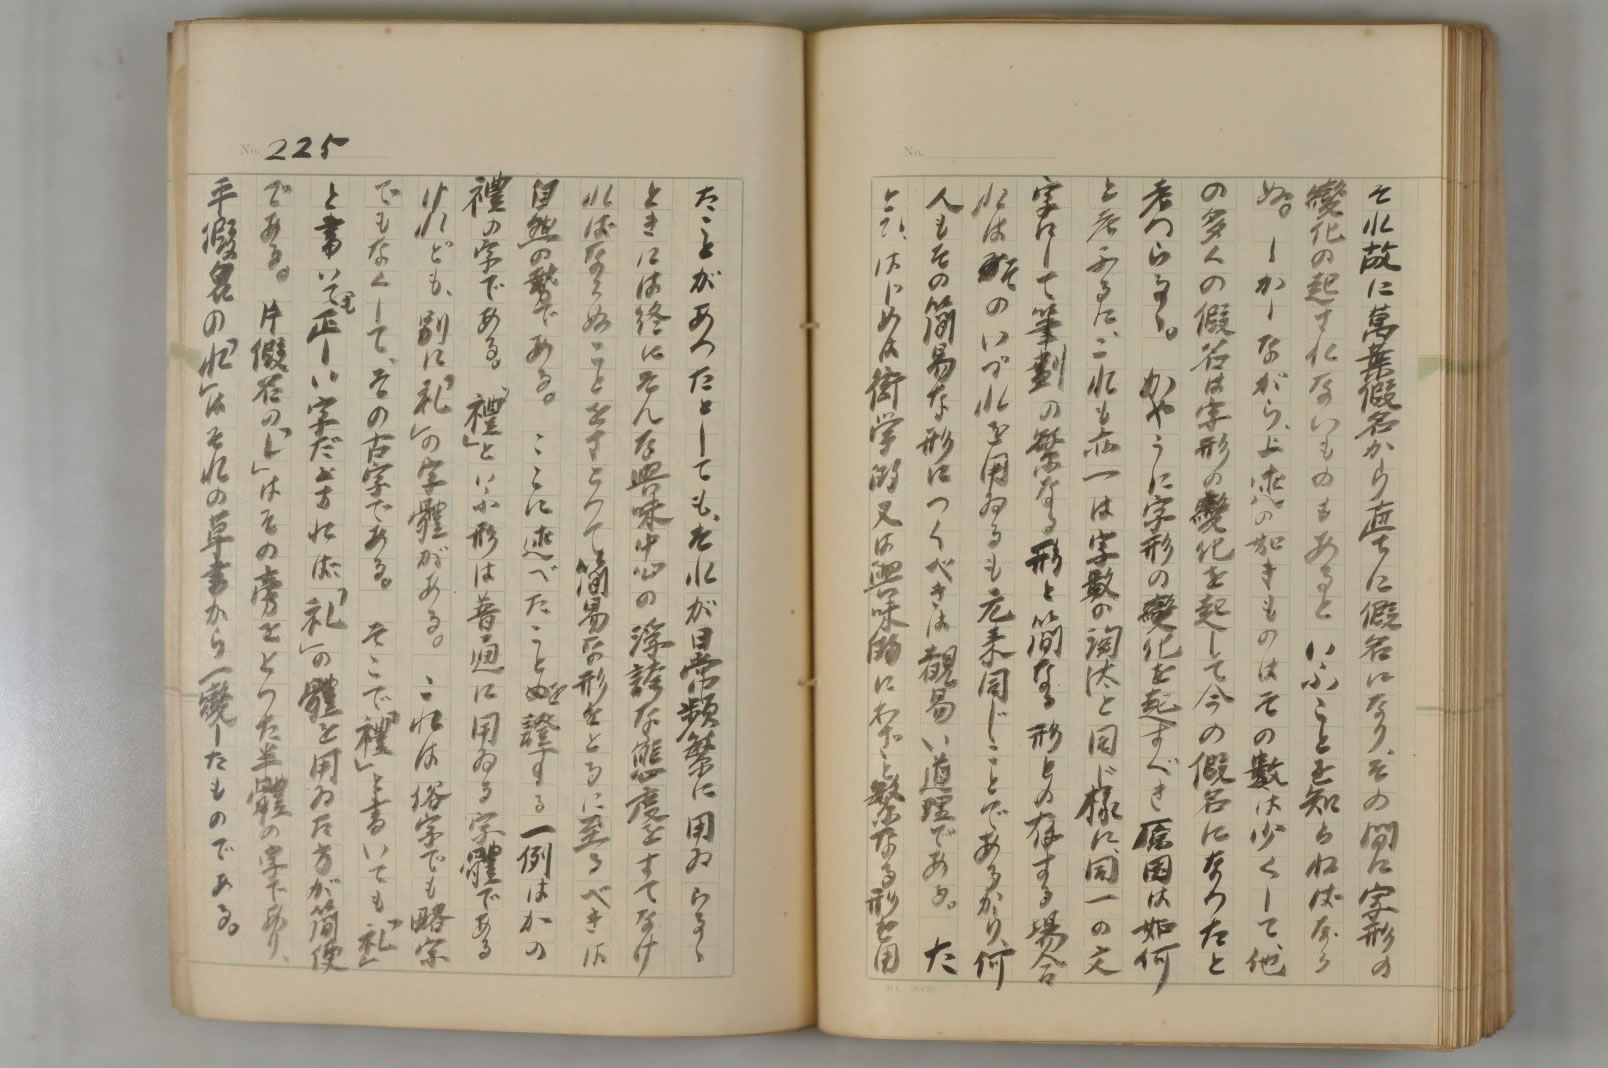 それ故に萬葉假名から直ちに假名になり、その間に字形の
變化の起すれないものもあると いふことを知らねばなら
ぬ。しかしながら、上述の如きものはその數は少くして、他
の多くの假名は字形の變化を起して今の假名になつたと
考へらるゝ。かやうに字形の變化を起すべき原因は如何
と考ふるに、これも亦一は字數の淘汰と同じ様に、同一の文
字にして筆劃の繁なる形と簡なる形との存する場合
には そのいづれを用ゐるも元来同じことであるから、何
人もその簡易な形につくべきは觀易い道理である。た
とひ、はじめは衒学的又は興味的に わざと繁なる形を用
No. 225
たことがあつたとしても、それが日常頻繁に用ゐらるゝ
ときには終にそんな興味中心の浮誇な態度をすてなけ
ればならぬことをすとつて簡易な形をとるに至るべきは
自然の勢である。ここに述べたことを證する一例はかの
禮の字である。「禮」といふ形は普通に用ゐる字體である
けれども、別に「礼」の字體がある。これは俗字でも略字
でもなくして、その古字である。そこで「禮」と書いても「礼」
と書いても正しい字だとすれば、「礼」の體を用ゐた方が簡便
である。片假名の「レ」はその旁をとつた半體の字であり、
平假名の「れ」はそれの草書から一變したものである。